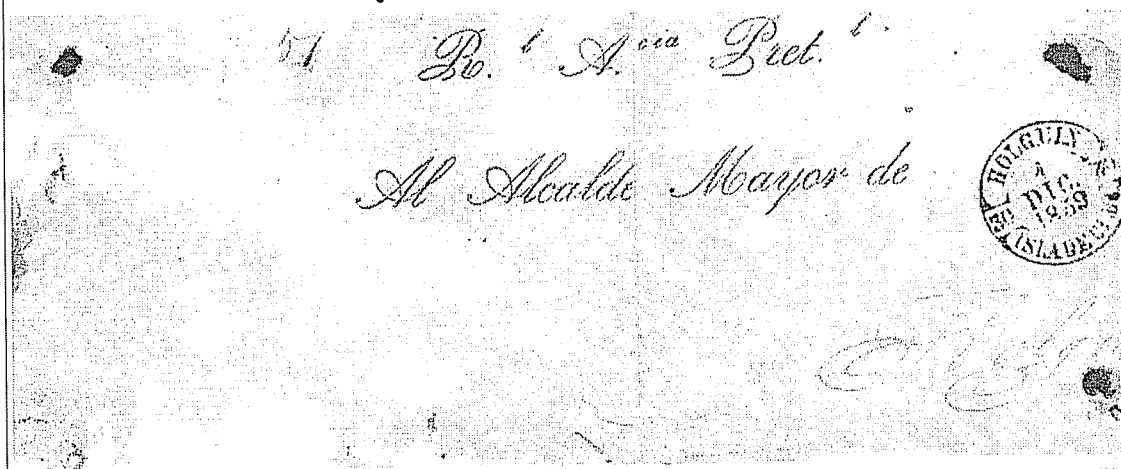 51 R.l A.cia Pret.l
Al Alcalde Mayor de
HOLGUIN
DIC.
1859
ISLA DE CUBA